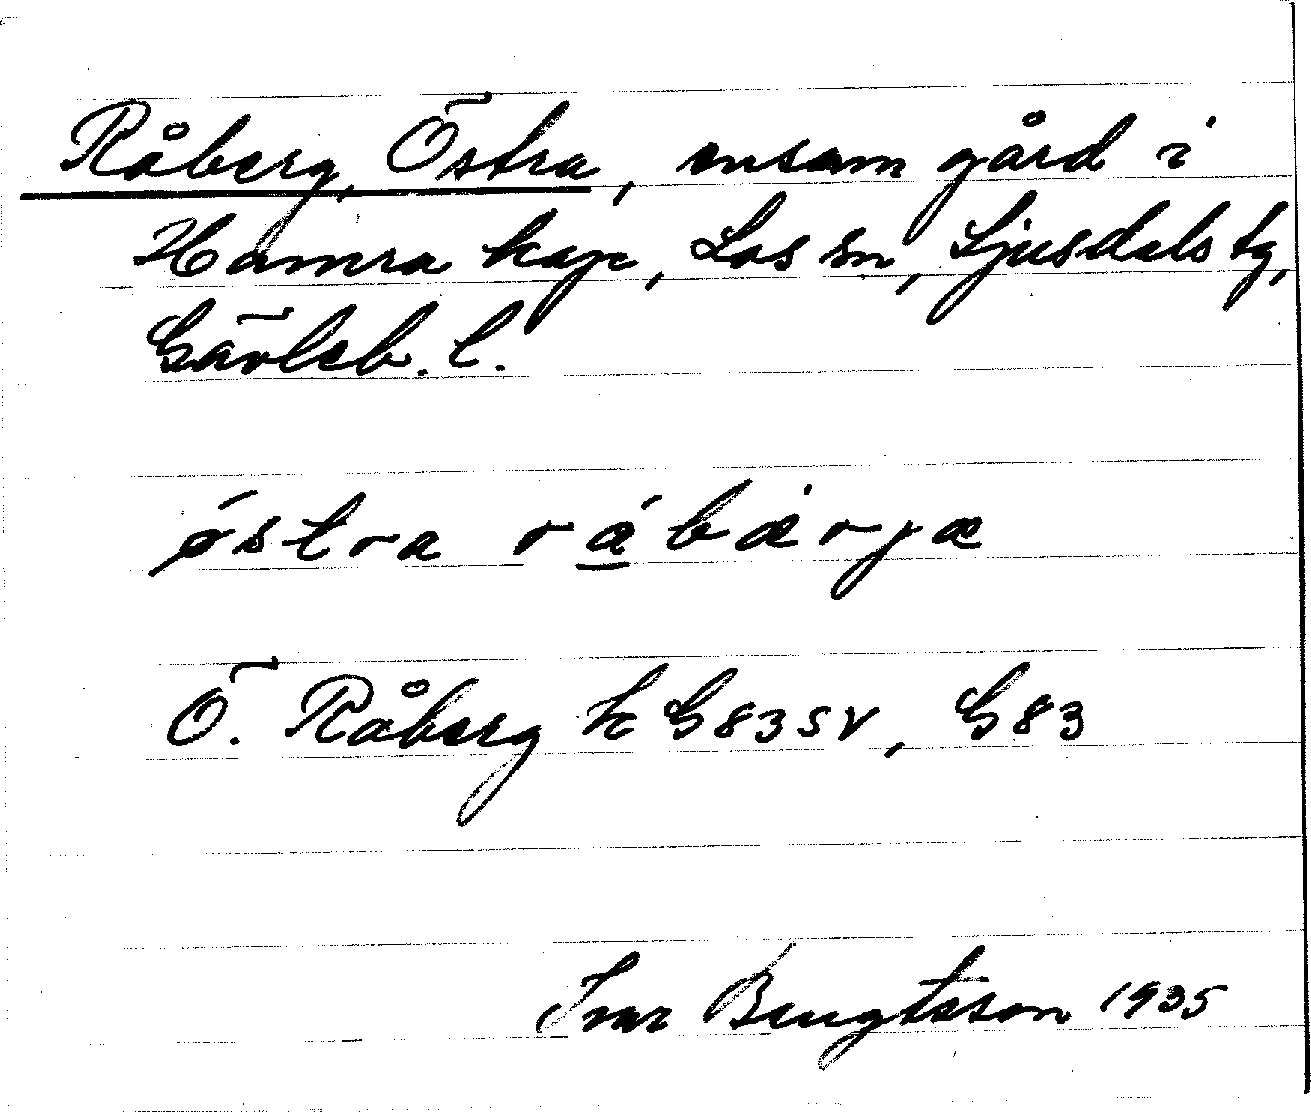 Råberg, Östra, ensam gård i
Hamra kap, Los sn, Ljusdals tg,
Gävleb. l.
østra rábærjæ
Ö. Råberg k G83SV, G83
Ivar Bengtsson 1935